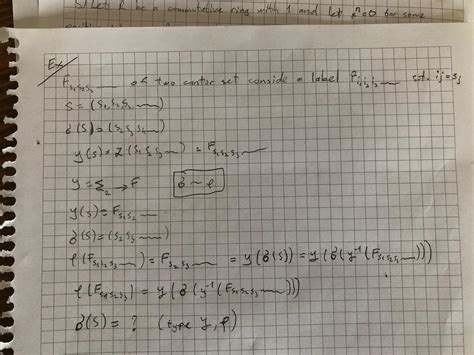 5) Let R be a commutative ring with 1 and let x^n=0 for some
Ex/
F_{s1s2s3}___ of two cantor set conside a label F_{i1i2i3}___ s.t. ij=sj
S=(s1,s2,s3,___)
δ(S)=(s2,s3,s4___)
y(s)=z(s1s2s3___)=F_{s1s2s3}___
y=Σ_2→F δ~ρ
y(s)=F_{s1s2}___
δ(S)=(s2s3___)
ρ(F_{s1s2s3}___)=F_{s2s3}___=y(δ(S))=y(δ(y^{-1}(F_{s1s2}___)))
ρ(F_{s1s2s3})=y(δ(y^{-1}(F_{s1s2s3}___)))
δ(S)=? (type y,ρ)